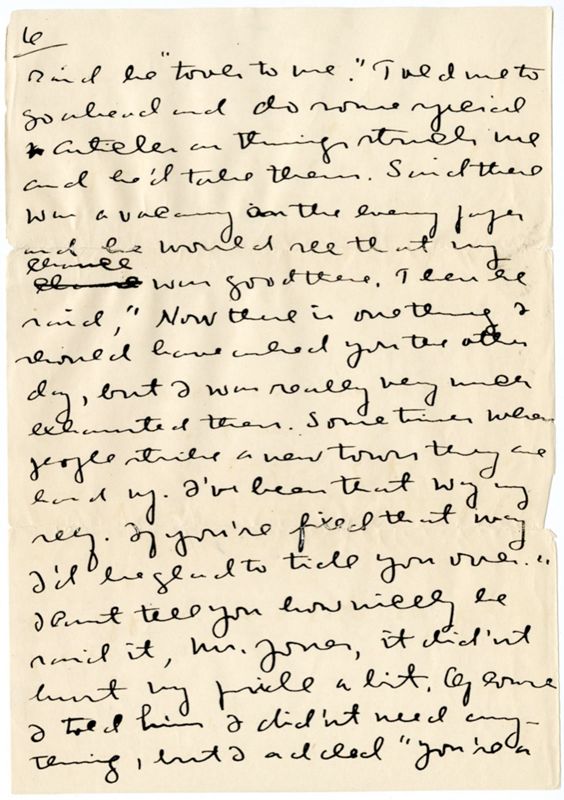 6
said he "took to me." Told me to
go ahead and do some special
articles on things struck me
and he'd take them. Said there
was a vacancy on the evening paper
and he would see that my
chance
was good there. Then he
said, "Now there is one thing I
should have asked you the other
day, but I was really very much
exhausted then. Sometimes when
people strike a new town they are
hard up. I've been that way my
self. If you're fixed that way
I'd be glad to tide you over."
I can't tell you how nicely he
said it, Mr. Jones, it did'nt
hurt my pride a bit. Of course
I told him I did'nt need any-
thing, but I added "you're a